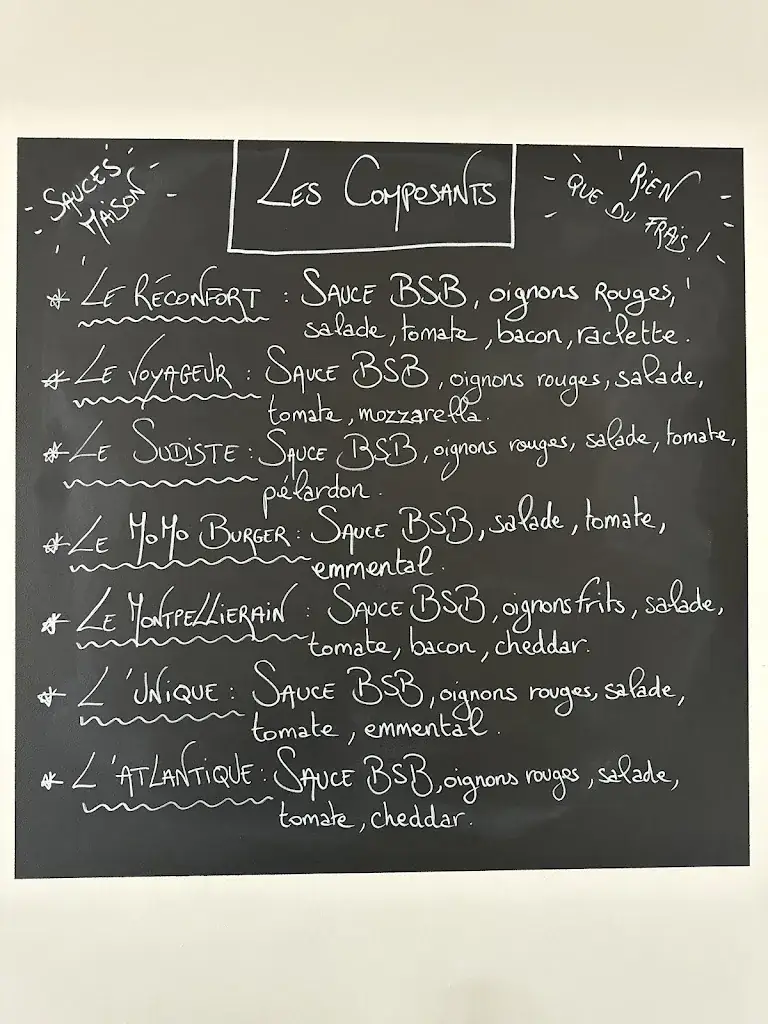 SAUCES
MAISON
LES COMPOSANTS
RIEN
QUE DU FRAIS !
* LE RÉCONFORT : SAUCE BSB, oignons Rouges,
salade, tomate, bacon, raclette.
* LE VOYAGEUR : SAUCE BSB, oignons rouges, salade,
tomate, mozzarella.
* LE SUDISTE : SAUCE BSB, oignons rouges, salade, tomate,
pélardon.
* LE MOMO BURGER : SAUCE BSB, salade, tomate,
emmental.
* LE MONTPELLIERAIN : SAUCE BSB, oignons frits, salade,
tomate, bacon, cheddar.
* L'UNIQUE : SAUCE BSB, oignons rouges, salade,
tomate, emmental.
* L'ATLANTIQUE : SAUCE BSB, oignons rouges, salade,
tomate, cheddar.